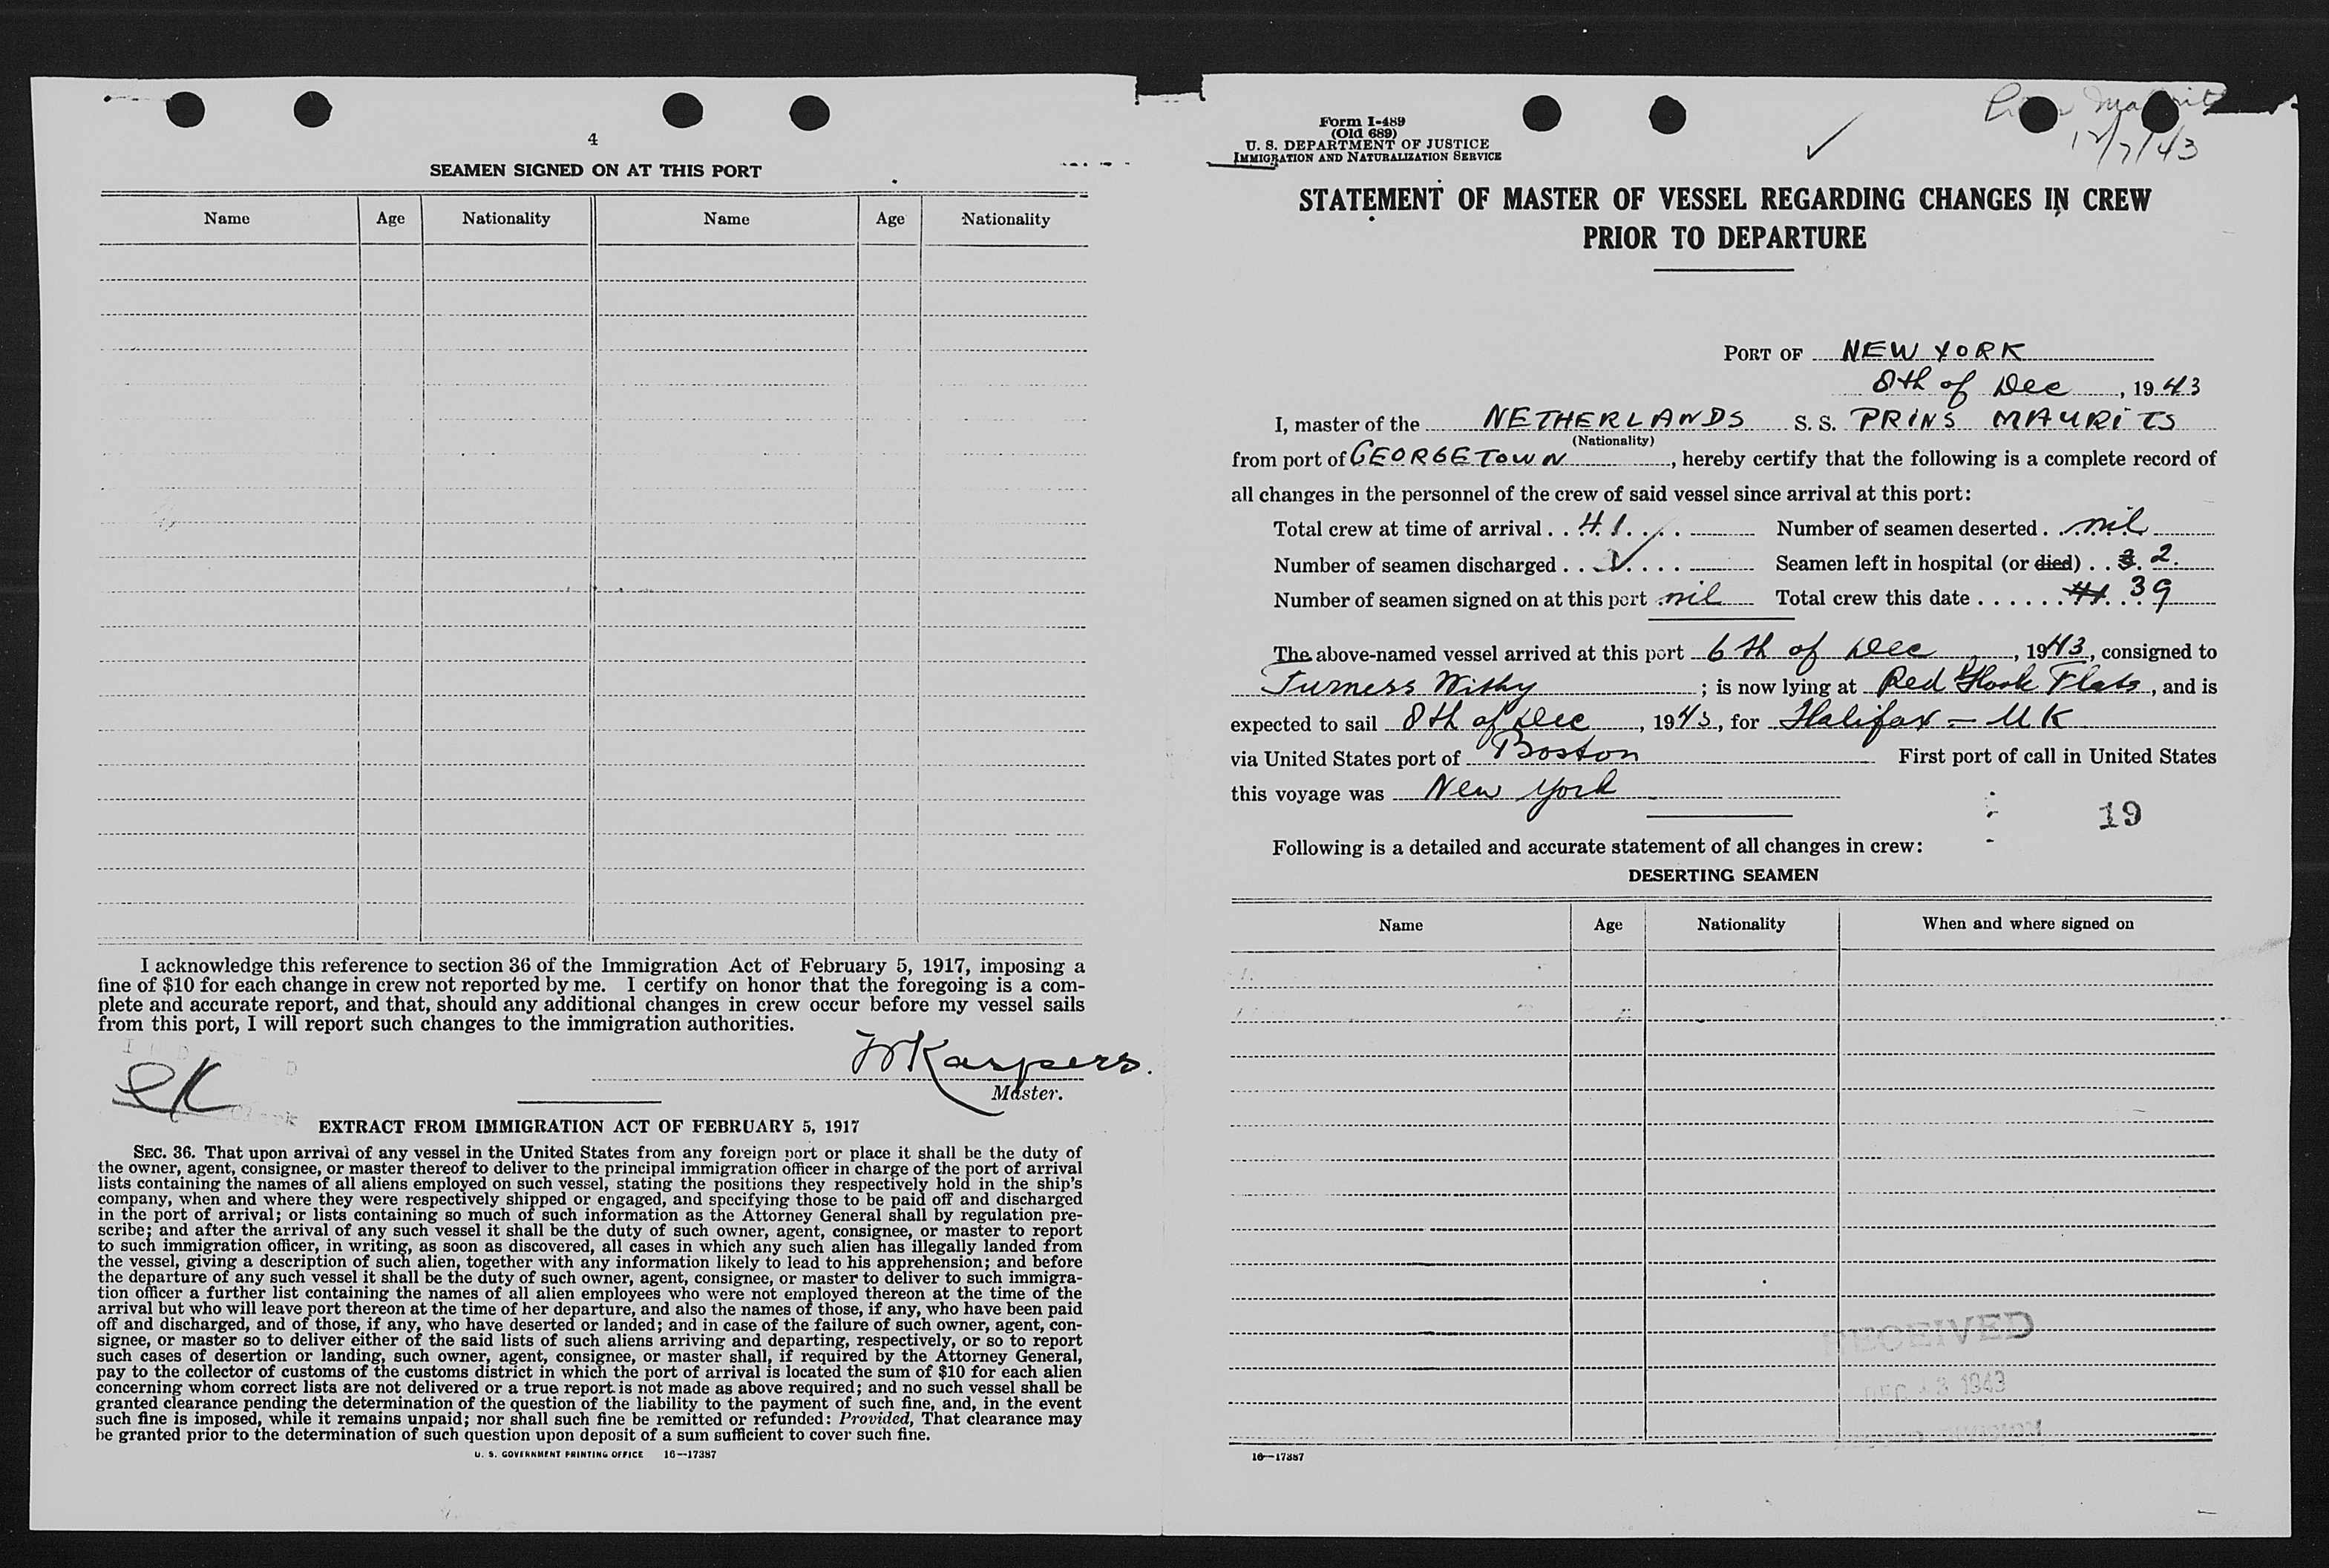 4
SEAMEN SIGNED ON AT THIS PORT
Name Age Nationality Name Age Nationality
I acknowledge this reference to section 36 of the Immigration Act of February 5, 1917, imposing a
fine of $10 for each change in crew not reported by me. I certify on honor that the foregoing is a com-
plete and accurate report, and that, should any additional changes in crew occur before my vessel sails
from this port, I will report such changes to the immigration authorities.
Kaspers.
Master.
EXTRACT FROM IMMIGRATION ACT OF FEBRUARY 5, 1917
SEC. 36. That upon arrival of any vessel in the United States from any foreign port or place it shall be the duty of
the owner, agent, consignee, or master thereof to deliver to the principal immigration officer in charge of the port of arrival
lists containing the names of all aliens employed on such vessel, stating the positions they respectively hold in the ship's
company, when and where they were respectively shipped or engaged, and specifying those to be paid off and discharged
in the port of arrival; or lists containing so much of such information as the Attorney General shall by regulation pre-
scribe; and after the arrival of any such vessel it shall be the duty of such owner, agent, consignee, or master to report
to such immigration officer, in writing, as soon as discovered, all cases in which any such alien has illegally landed from
the vessel, giving a description of such alien, together with any information likely to lead to his apprehension; and before
the departure of any such vessel it shall be the duty of such owner, agent, consignee, or master to deliver to such immigra-
tion officer a further list containing the names of all alien employees who were not employed thereon at the time of the
arrival but who will leave port thereon at the time of her departure, and also the names of those, if any, who have been paid
off and discharged, and of those, if any, who have deserted or landed; and in case of the failure of such owner, agent, con-
signee, or master so to deliver either of the said lists of such aliens arriving and departing, respectively, or so to report
such cases of desertion or landing, such owner, agent, consignee, or master shall, if required by the Attorney General,
pay to the collector of customs of the customs district in which the port of arrival is located the sum of $10 for each alien
concerning whom correct lists are not delivered or a true report is not made as above required; and no such vessel shall be
granted clearance pending the determination of the question of the liability to the payment of such fine, and, in the event
such fine is imposed, while it remains unpaid; nor shall such fine be remitted or refunded: Provided, That clearance may
be granted prior to the determination of such question upon deposit of a sum sufficient to cover such fine.
U. S. GOVERNMENT PRINTING OFFICE 16—17387
Form I-489
(Old 689)
U. S. DEPARTMENT OF JUSTICE
IMMIGRATION AND NATURALIZATION SERVICE
12/7/43
STATEMENT OF MASTER OF VESSEL REGARDING CHANGES IN CREW
PRIOR TO DEPARTURE
PORT OF NEW YORK
8th of Dec, 1943
I, master of the NETHERLANDS S. S. PRINS MAURITS
(Nationality)
from port of GEORGETOWN, hereby certify that the following is a complete record of
all changes in the personnel of the crew of said vessel since arrival at this port:
Total crew at time of arrival . . 41 Number of seamen deserted . . nil
Number of seamen discharged . . Seamen left in hospital (or died) . . 3 2
Number of seamen signed on at this port nil Total crew this date . . . . . . 41 39
The above-named vessel arrived at this port 6th of Dec, 1943, consigned to
Furness Withy; is now lying at Red Hook Flats, and is
expected to sail 8th of Dec, 1943, for Halifax - UK
via United States port of Boston First port of call in United States
this voyage was New York
19
Following is a detailed and accurate statement of all changes in crew:
DESERTING SEAMEN
Name Age Nationality When and where signed on
RECEIVED
1943
16—17387